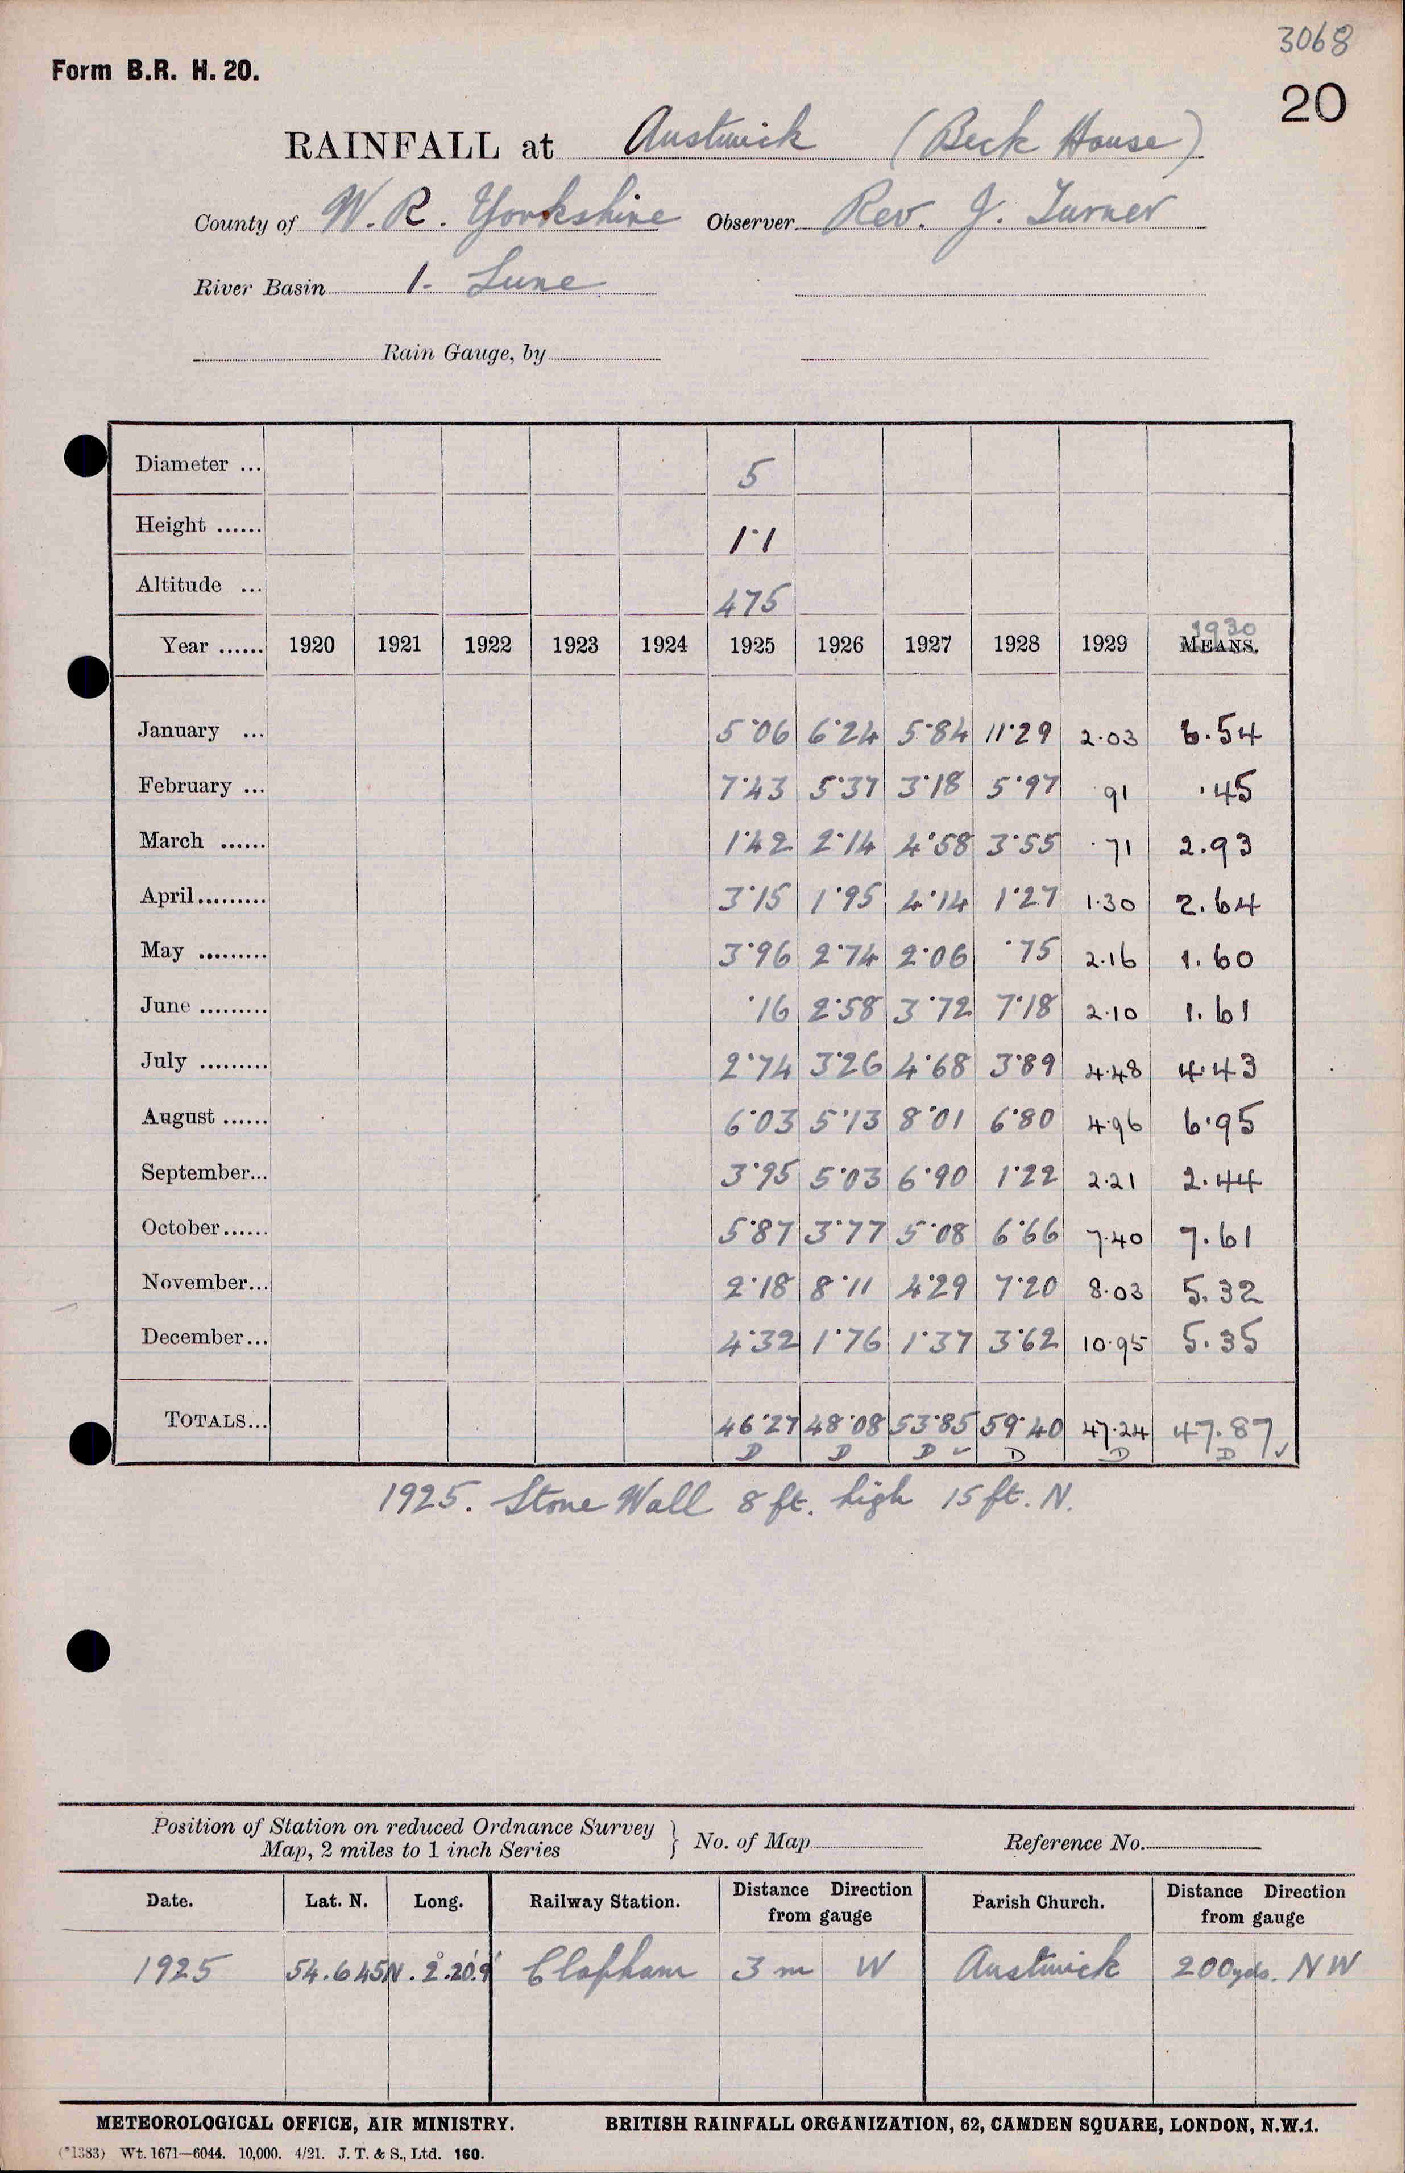 3068
Form B.R. H. 20.
20
RAINFALL at Austwick (Beck House)
County of W. R. Yorkshire Observer Rev. J. Turner
River Basin 1. Lune
Rain Gauge, by
Diameter ... 5
Height ...... 1·1
Altitude ... 475
1930
Year ...... 1920 1921 1922 1923 1924 1925 1926 1927 1928 1929 MEANS.
January ... 5·06 6·24 5·84 11·29 2·03 6.54
February ... 7·43 5·37 3·18 5·97 ·91 ·45
March ...... 1·42 2·14 4·58 3·55 ·71 2.93
April......... 3·15 1·95 4·14 1·27 1·30 2.64
May ......... 3·96 2·74 2·06 ·75 2·16 1.60
June ......... ·16 2·58 3·72 7·18 2·10 1.61
July ......... 2·74 3·26 4·68 3·89 4·48 4·43
August ...... 6·03 5·13 8·01 6·80 4·96 6·95
September... 3·95 5·03 6·90 1·22 2·21 2.44
October...... 5·87 3·77 5·08 6·66 7·40 7.61
November... 2·18 8·11 4·29 7·20 8·03 5.32
December... 4·32 1·76 1·37 3·62 10·95 5.35
TOTALS... 46·27 48·08 53·85 59·40 47·24 47.87
D D D ✓ D D D ✓
1925. Stone Wall 8 ft. high 15 ft. N.
Position of Station on reduced Ordnance Survey
Map, 2 miles to 1 inch Series } No. of Map Reference No.
Date. Lat. N. Long. Railway Station. Distance Direction from gauge Parish Church. Distance Direction from gauge
1925 54.6 45N. 2°.20'.9" Clapham 3 m W Austwick 200 yds. NW
METEOROLOGICAL OFFICE, AIR MINISTRY. BRITISH RAINFALL ORGANIZATION, 62, CAMDEN SQUARE, LONDON, N.W.1.
(*1383) Wt. 1671—6044. 10,000. 4/21. J. T. & S., Ltd. 160.